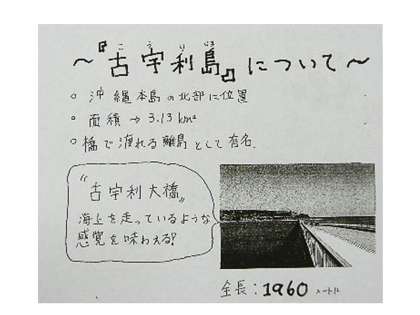 ～『古宇利島』について～
こうりじま
○ 沖縄本島の北部に位置
○ 面積 → 3.13 km²
○ 橋で渡れる離島として有名.
〝古宇利大橋〟
海上を走っているような
感覚を味わえる!?
全長：1960 メートル